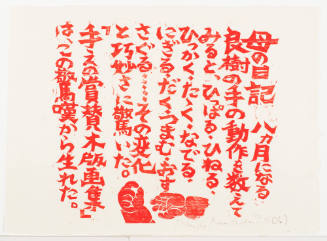 母の日記 八カ月になる
良樹の手の動作を数えて
みると、ひっぱる・ひねる・
ひっかく・たたく・なでる・
にぎる・だく・つまむ・おす
さぐる……その変化
と巧妙さに驚いた。
『手への賞賛木版画集』
は、この驚嘆から生れた。